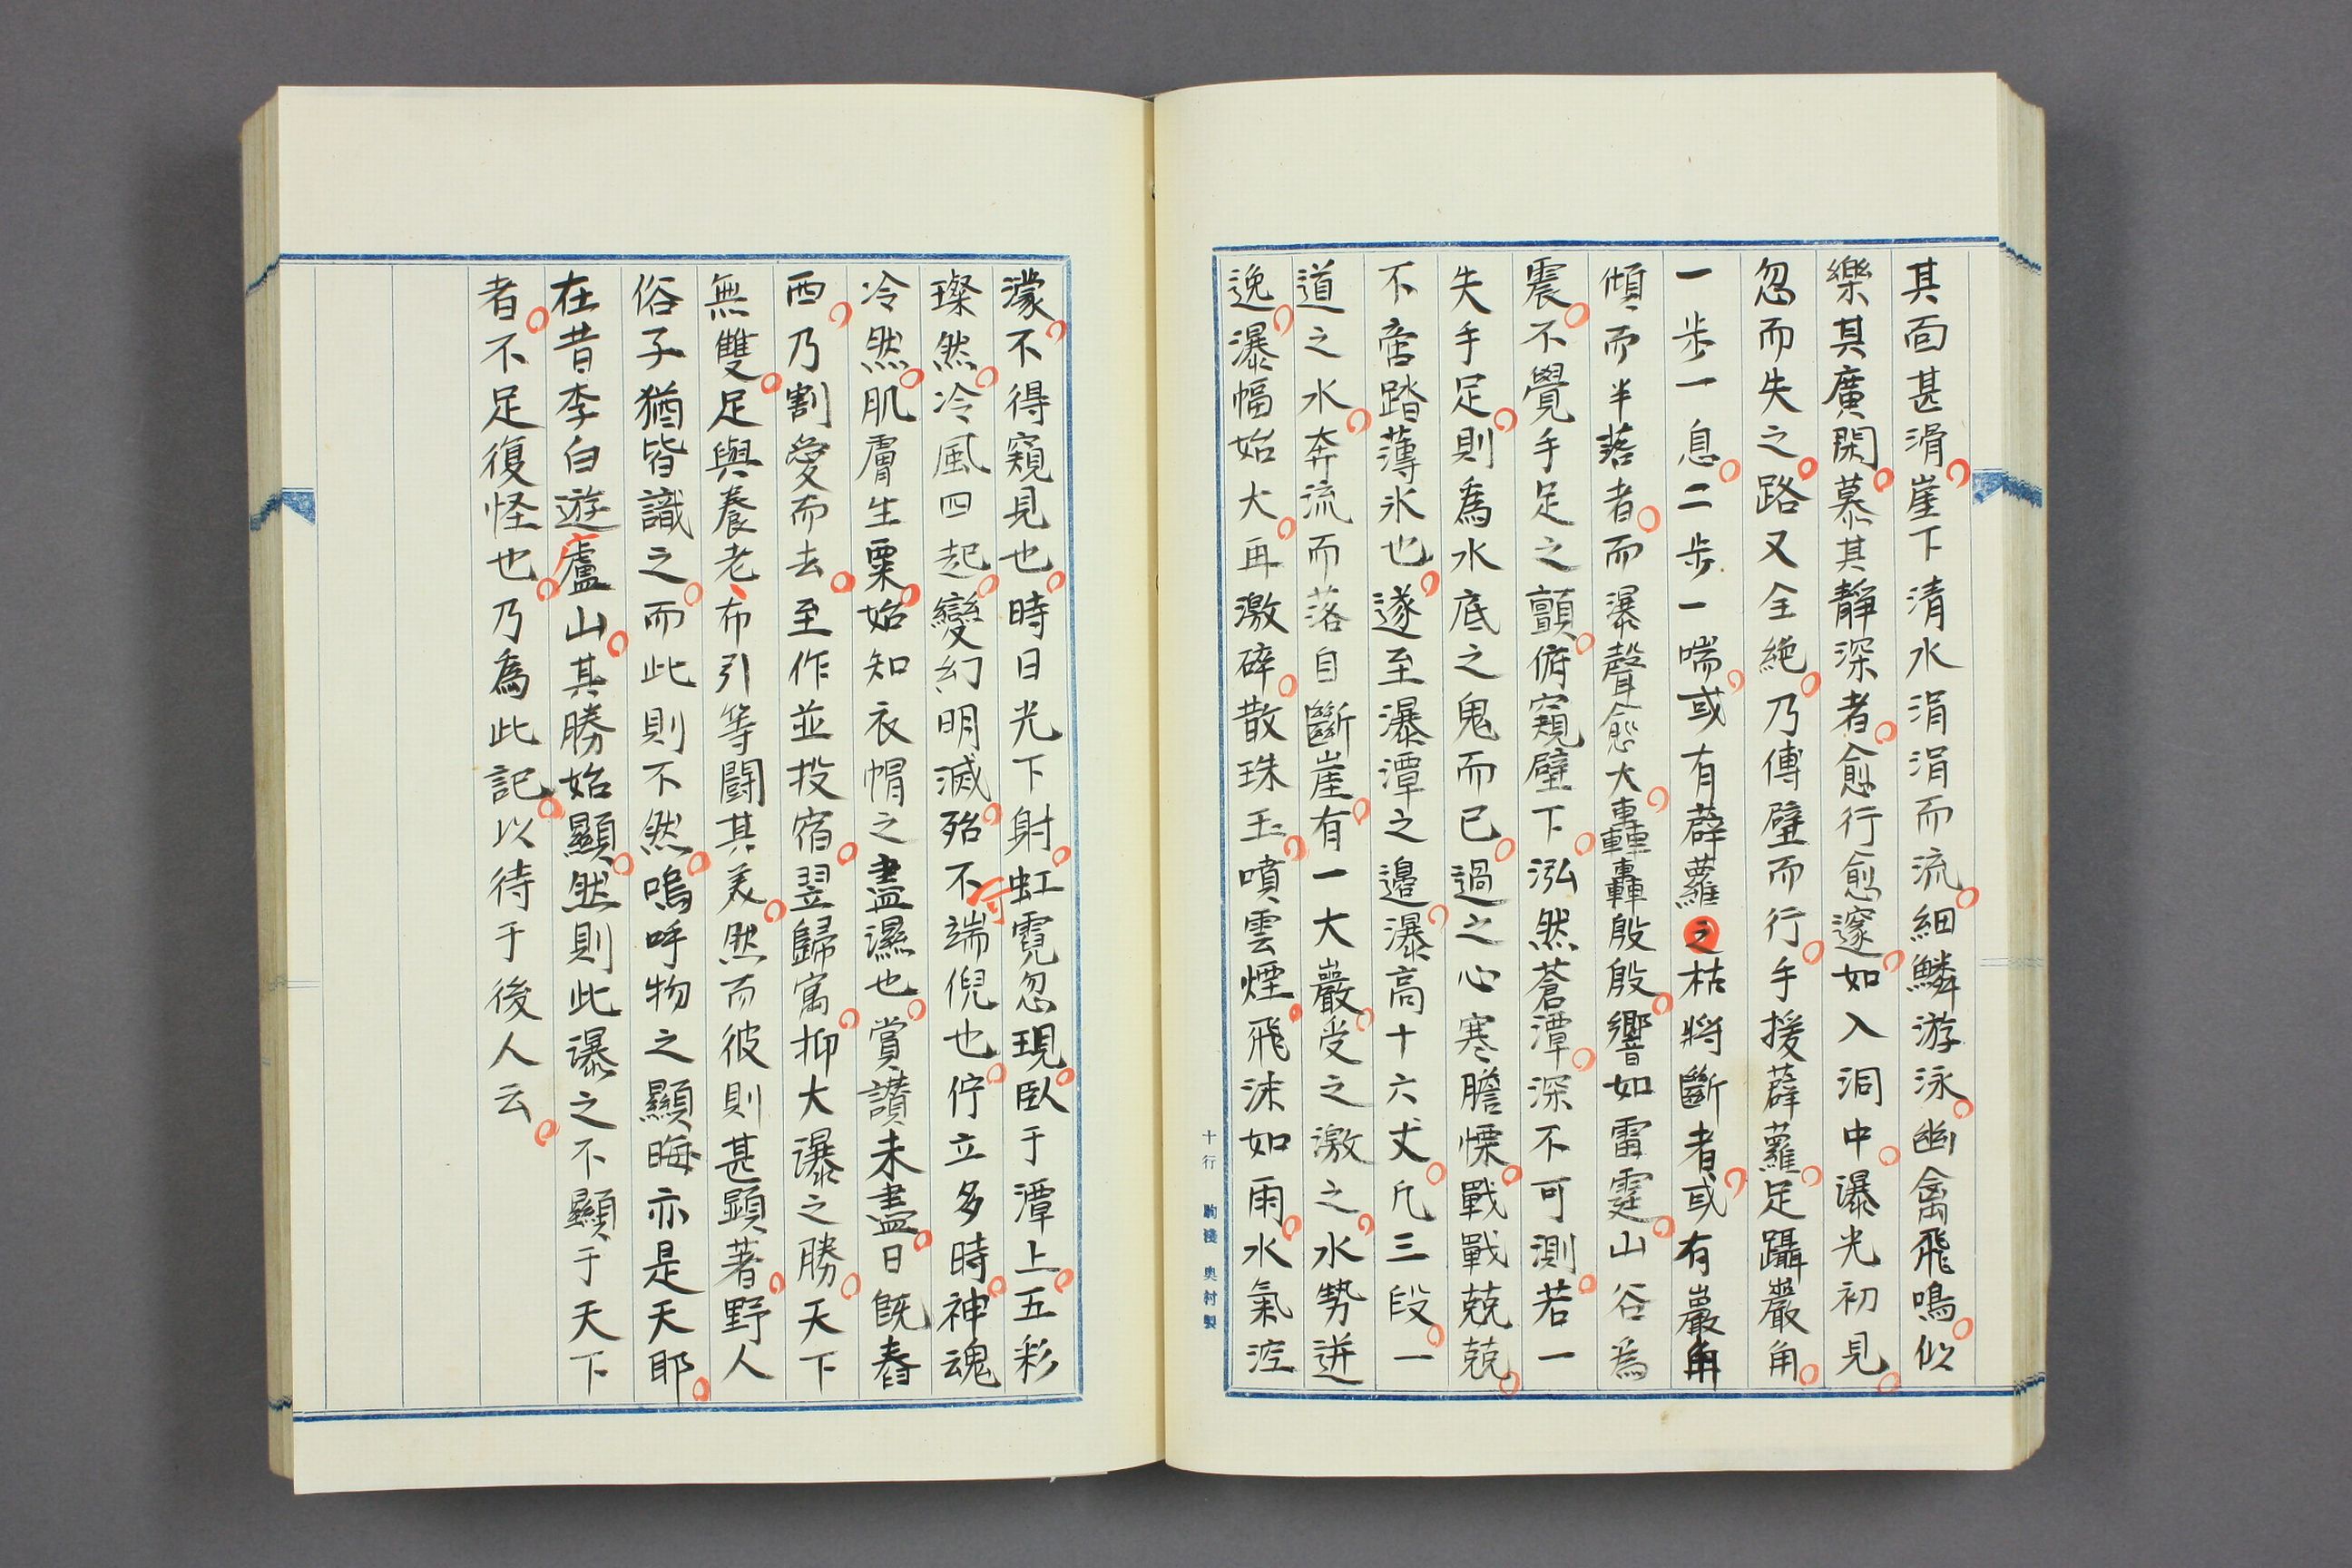 其面甚滑崖下清水涓涓而流細鱗游泳幽禽飛鳴似
樂其廣閑慕其靜深者愈行愈邃如入洞中瀑光初見
忽而失之路又全絶乃傅壁而行手援薜蘿足躡巖角
一步一息二步一喘或有薜蘿之枯將斷者或有巖角
傾而半落者而瀑聲愈大轟轟殷殷響如雷霆山谷為
震不覺手足之顫俯窺壁下泓然蒼潭深不可測若一
失手足則為水底之鬼而已過之心寒膽慄戰戰兢兢
不啻踏薄氷也遂至瀑潭之邉瀑高十六丈凡三段一
道之水奔流而落自斷崖有一大巖受之激之水勢迸
逸瀑幅始大再激碎散珠玉噴雲煙飛沫如雨水氣涳
濛不得窺見也時日光下射虹霓忽現臥于潭上五彩
璨然冷風四起變幻明滅殆不可端倪也佇立多時神魂
冷然肌膚生粟始知衣帽之盡濕也賞讃未盡日既舂
西乃割愛而去至作並投宿翌歸寓抑大瀑之勝天下
無雙足與養老、布引等鬪其美然而彼則甚顕著野人
俗子猶皆識之而此則不然嗚呼物之顯晦亦是天耶
在昔李白遊廬山其勝始顯然則此瀑之不顯于天下
者不足復怪也乃為此記以待于後人云
十行 駒棧 奥村製